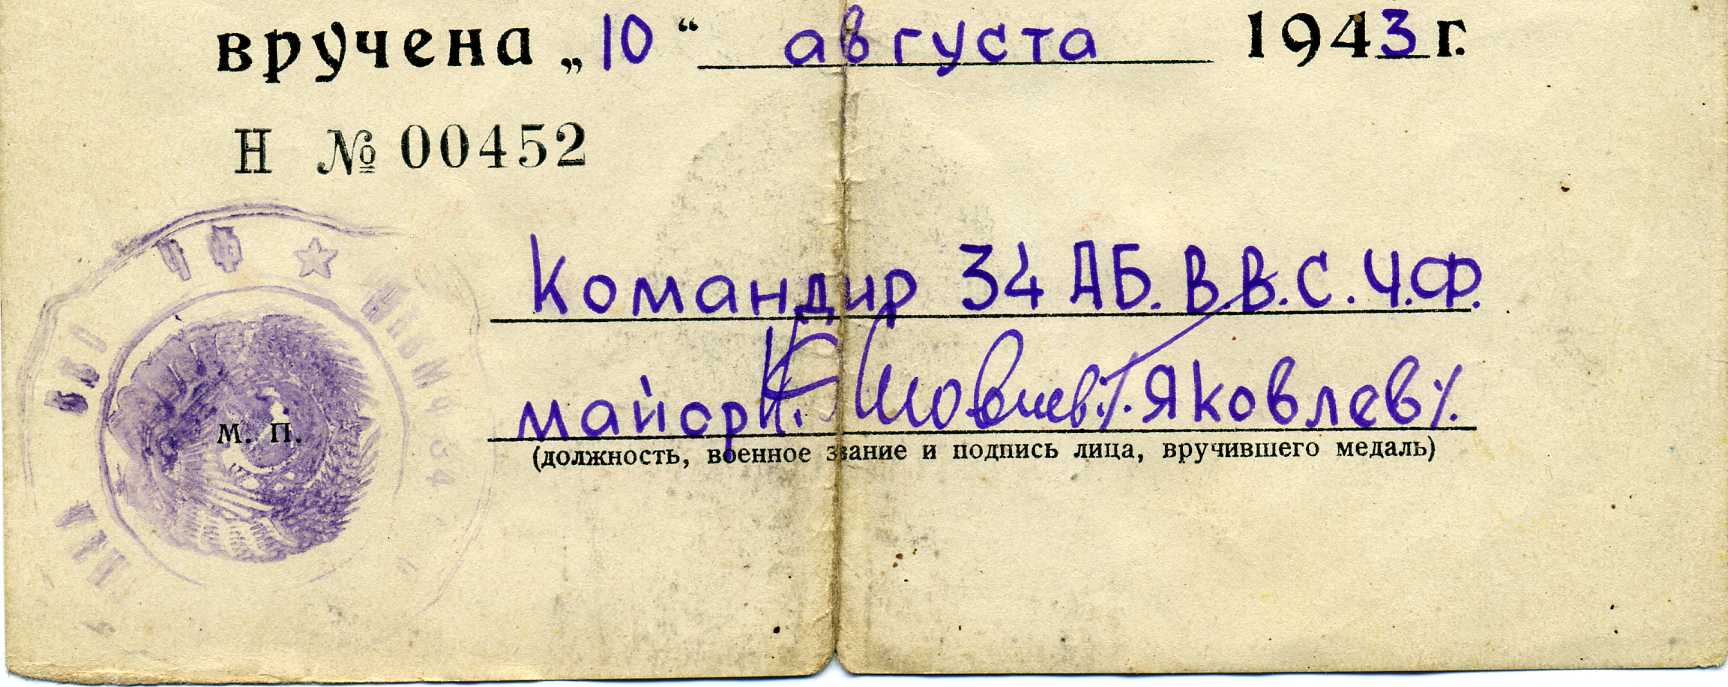 вручена „10“ августа 1943 г.
Н № 00452
ЧФ
Командир 34 АБ. В.В.С.Ч.Ф.
майор К. Яковлев /. Яковлев /.
м. п.
(должность, военное звание и подпись лица, вручившего медаль)